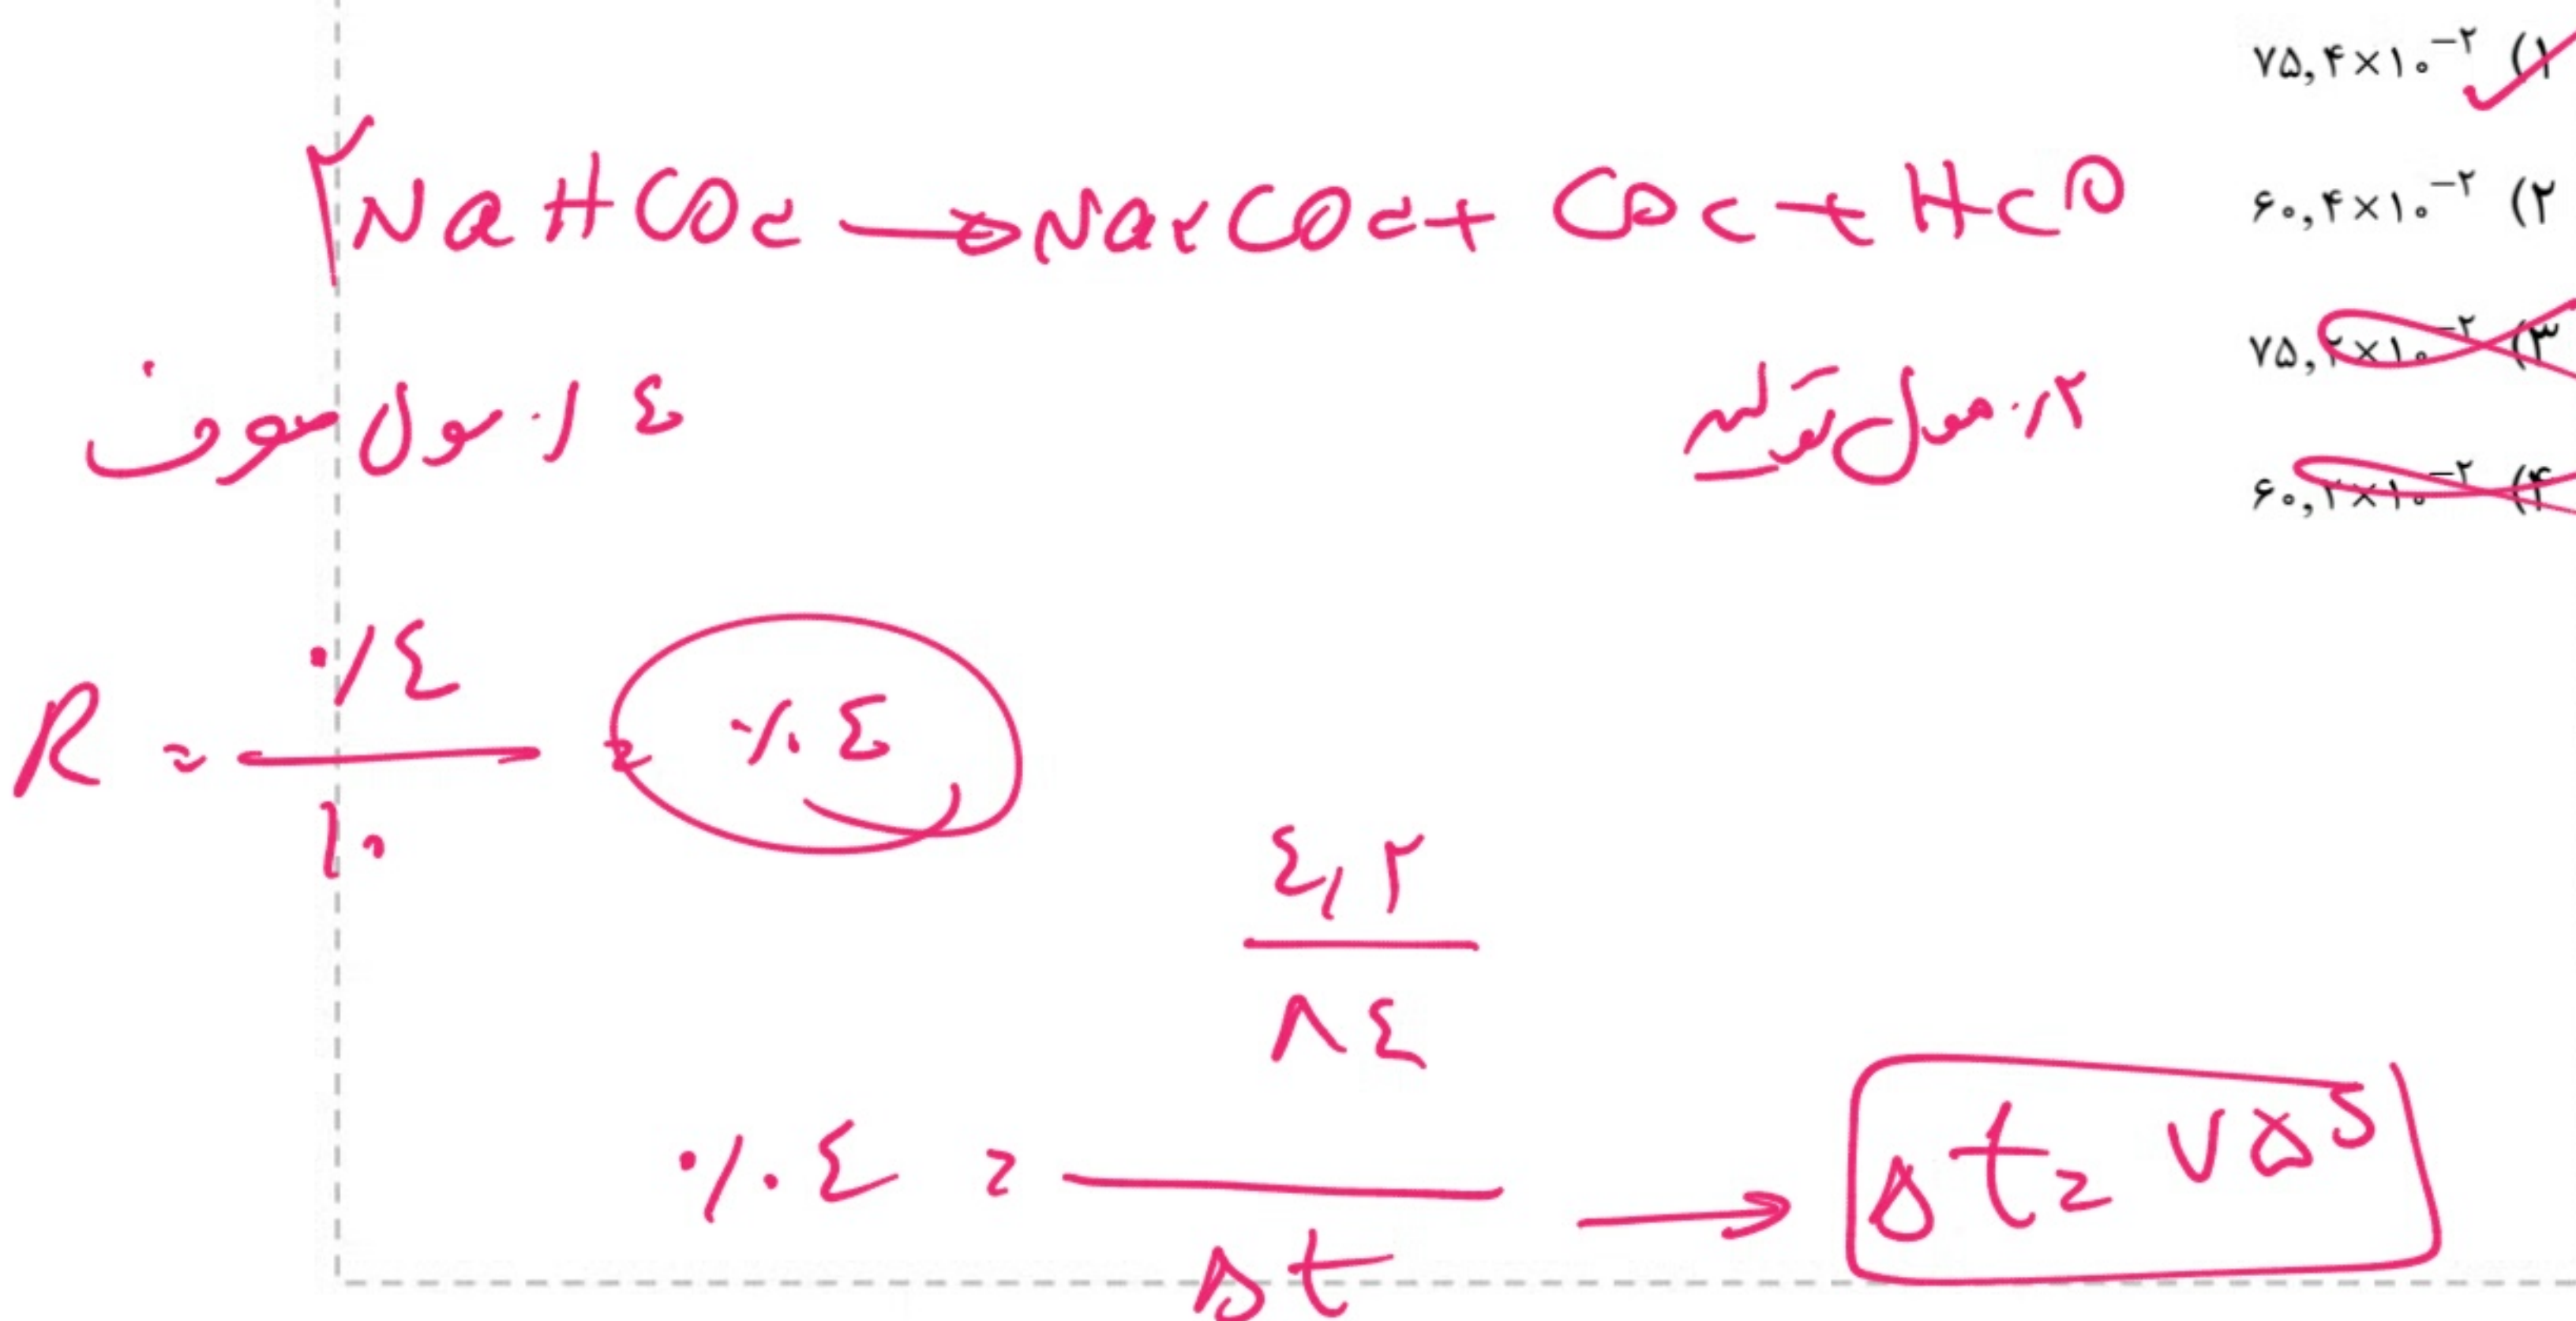 ۷۵,۴×۱۰^-۲ (۱
۶۰,۴×۱۰^-۲ (۲
۷۵,۲×۱۰^-۲ (۳
۶۰,۲×۱۰^-۲ (۴
۲NaHCO۳ → Na۲CO۳ + CO۲ + H۲O
۰/٤ مول مصرف
۰/۲ مول تولید
R = ۰/٤ / ۱۰ = ۰/۰٤
۰/۰٤ = (٤,۲ / ۸٤) / Δt → Δt = ۷۵s